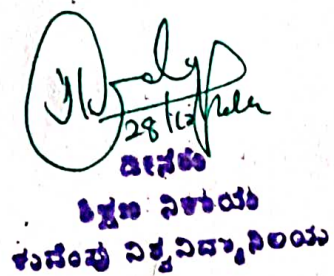 28/12
ಡೀನರು
ಶಿಕ್ಷಣ ನಿಕಾಯ
ಕುವೆಂಪು ವಿಶ್ವವಿದ್ಯಾನಿಲಯ